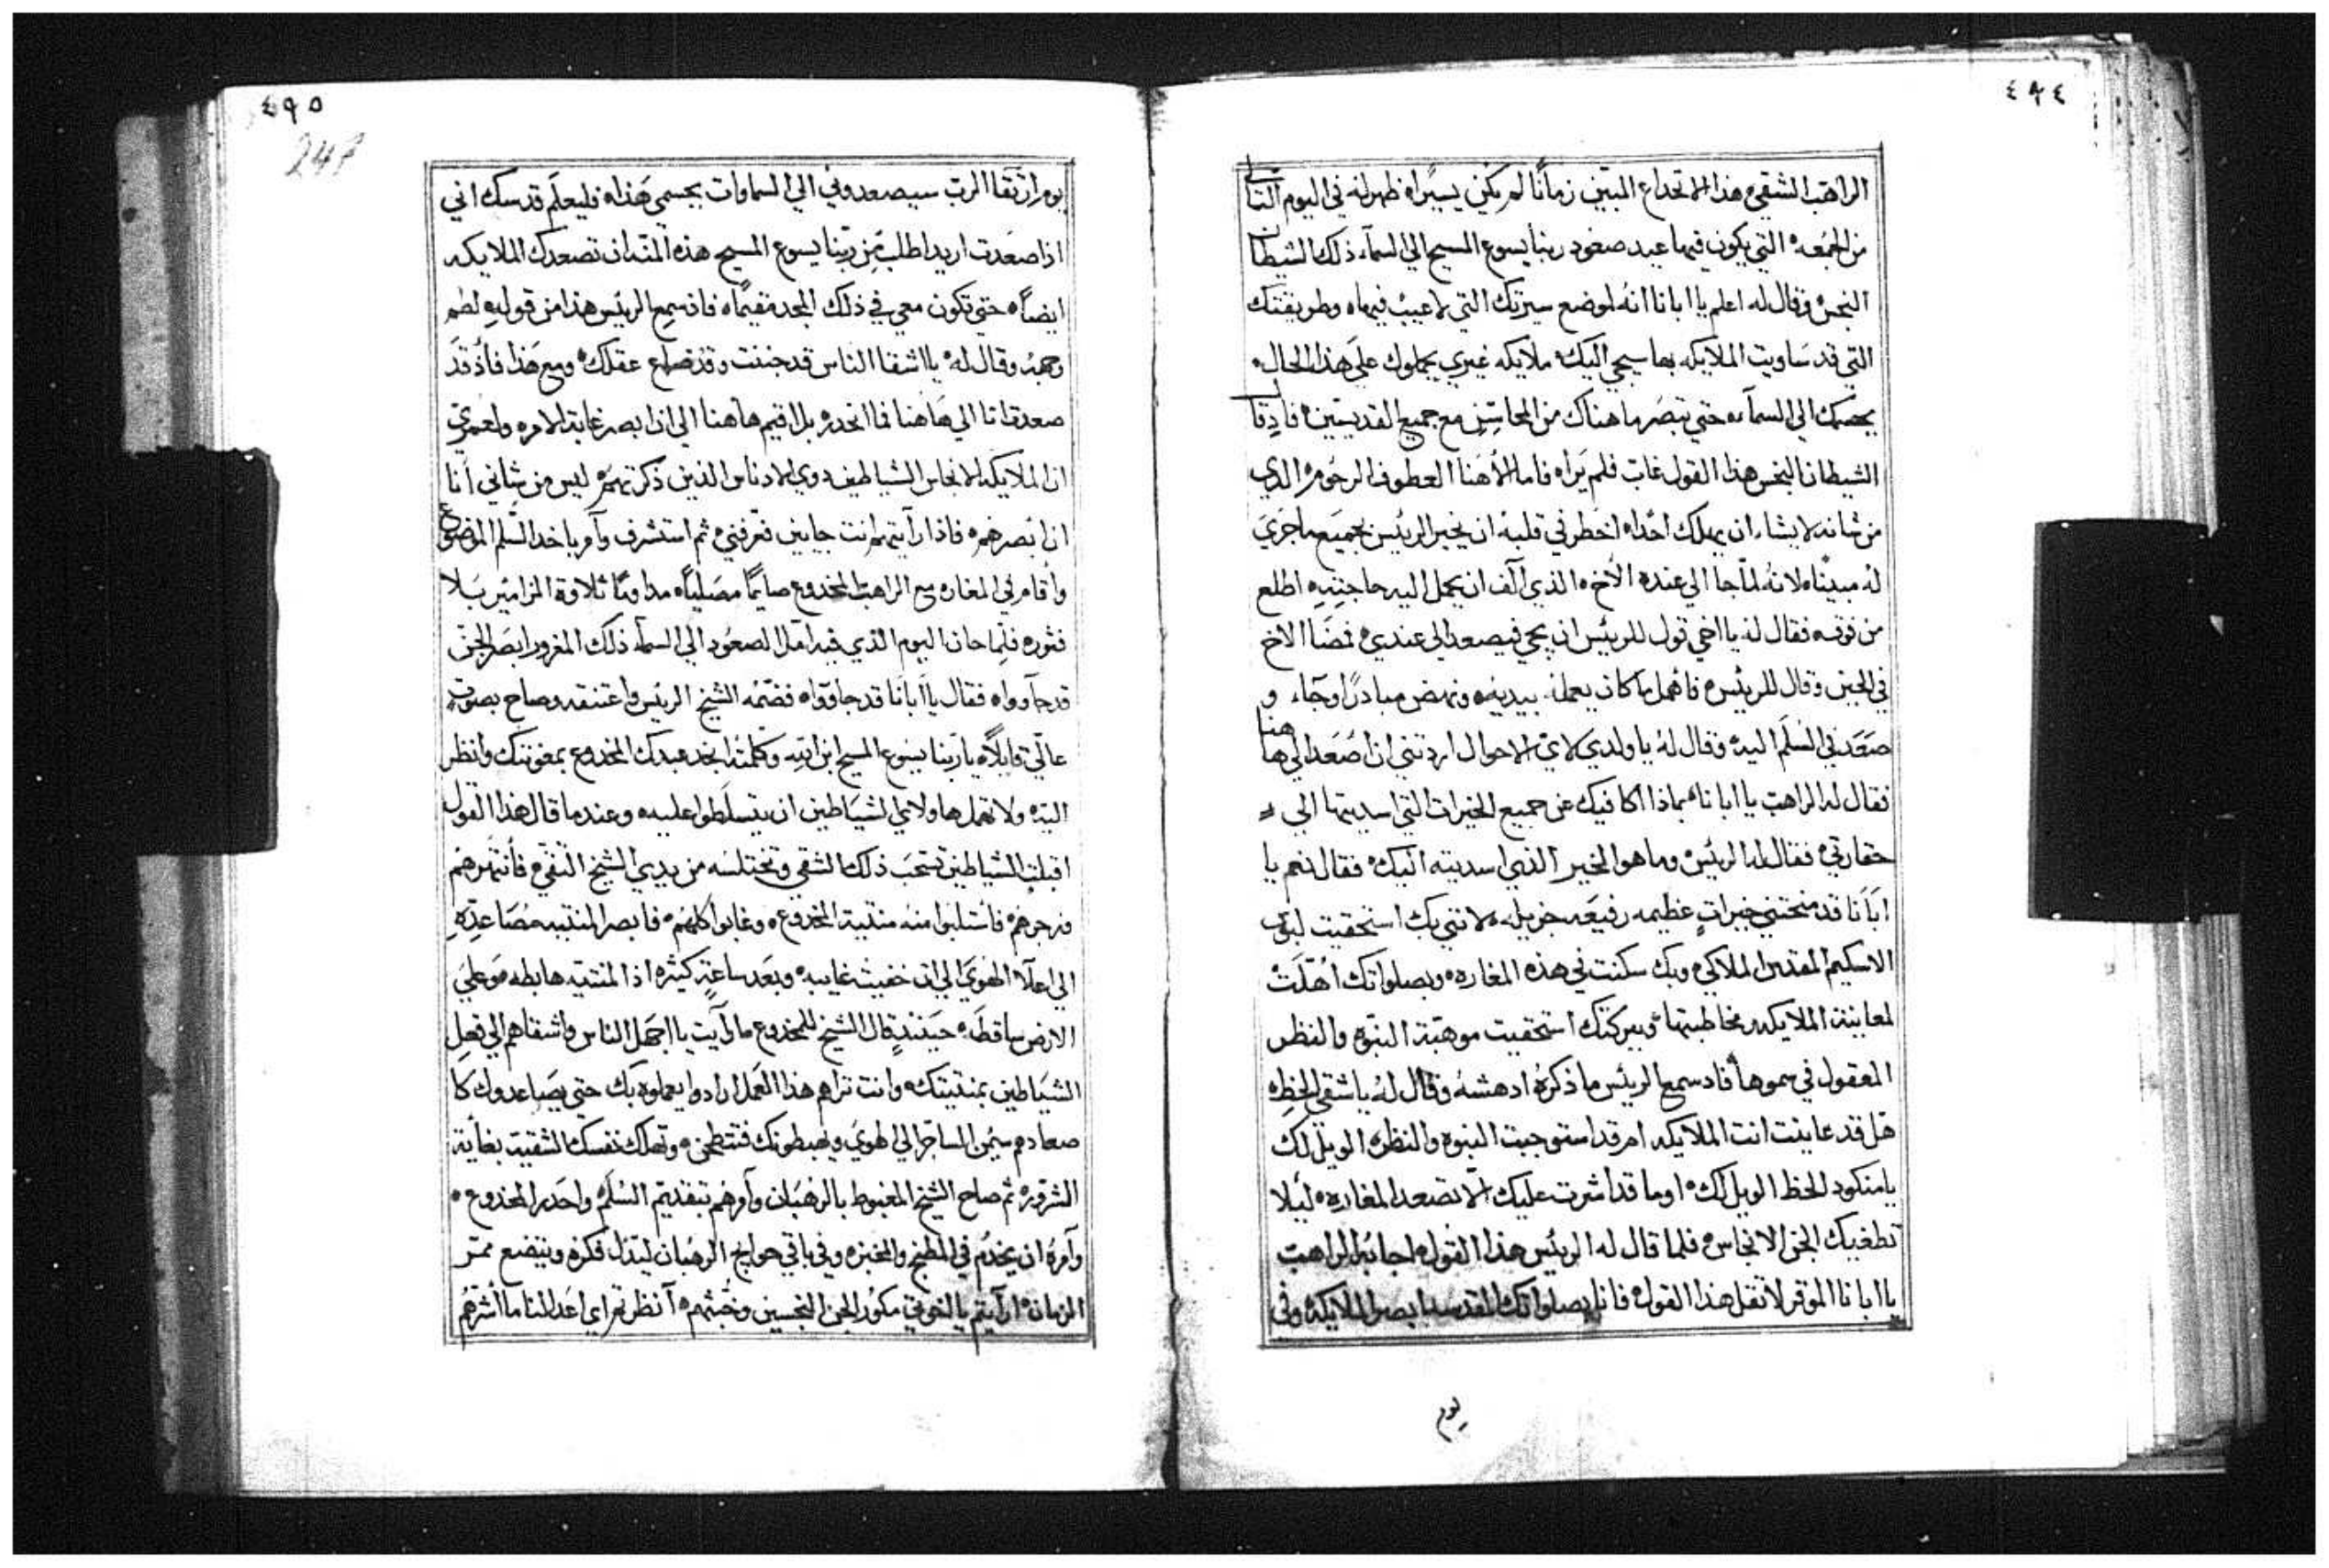 ٤٩٤
الراهب الشقي هذا الانخداع المبين زمانًا لم يكن يسيرًا ه ظهر له في اليوم الثاني
من الجمعه التي يكون فيها عيد صعود ربنا يسوع المسيح الي السمآء ذلك الشيطان
النجس وقال له اعلم يا ابانا انه لموضع سيرتك التي لا عيب فيها ه وطريقتك
التي قد ساويت الملايكه بها سيجي اليك ملايكه غيري يحملوك علي هذا الحال
بجسمك الي السمآء حتي تبصر ما هناك من المحاسن مع جميع القديسين ه فاذ قال
الشيطان النجس هذا القول غاب فلم يراه فاما الاهنا العطوف الرحوم الذي
من شانه لا يشاء ان يهلك احدًا ه اخطر في قلبه ان يخبر الريس بجميع ما جري
له مبينًا ه لانه لما جا الي عنده الاخ ه الذي الف ان يحمل اليه حاجته اطلع
من فوقه فقال له يا اخي قول للريس ان يجي فيصعد الي عندي ه فمضا الاخ
في الحين وقال للريس ه فاهمل ما كان يعمله بيديه ه ونهض مبادرًا وجاء و
صعد في السلم اليه وقال له يا ولدي لاي الاحوال اردتني ان اصعد الي هاهنا
فقال له الراهب يا ابانا بماذا اكافيك عن جميع الخيرات التي اسديتها الي
حقارتي ه فقال له الريس ه وما هو الخير الذي اسديته اليك ه فقال نعم يا
ابانا قد منحتني خيراتٍ عظيمه رفيعه جزيله ه لانني بك استحقيت لبوس
الاسكيم المقدس الملاكي ه وبك سكنت في هذه المغاره ه وبصلواتك اهلت
لمعاينة الملايكه ومخاطبتها ه وببركتك استحقيت موهبة النبوه والنظر
المعقول في سموها فاذ سمع الريس ما ذكره ادهشه وقال له يا شقي الحظ ه
هل قد عاينت انت الملايكه ام قد استوجبت النبوه والنظر ه الويل لك
يا منكود الحظ الويل لك ه اوما قد اشرت عليك الا تصعد المغاره ه ليلا
تطغيك الجن الانجاس ه فلما قال له الريس هذا القول ه اجابه الراهب
يا ابانا الموقر لا تقل هذا القول ه فاني بصلواتك المقدسه ابصر الملايكه وفي
يوم
٤٩٥
247
يوم ارتقا الرب سيصعدوني الي السماوات بجسمي هذا ه فليعلم قدسك اني
اذا صعدت اريد اطلب من ربنا يسوع المسيح هذه المنه ان تصعدك الملايكه
ايضًا ه حتي تكون معي في ذلك المجد مقيمًا ه فاذ سمع الريس هذا من قوله لطم
وجهه وقال له ه يا اشقا الناس قد جننت وقد ضاع عقلك ه ومع هذا فاذ قد
صعدت انا الي هاهنا فما انحدر ه بل اقيم هاهنا الي ان ابصر غاية الامر ه ولعمري
ان الملايكه الانجاس الشياطين ذوي الادناس الذين ذكرتهم ه ليس من شاني انا
ان ابصرهم ه فاذا رايتهم انت جايين فعرفني ه ثم استشرف وآمر باخد السلم الموضوع
واقام في المغاره مع الراهب المخدوع صايمًا مصليًا ه مداومًا تلاوة المزامير بلا
فتور ه فلما حان اليوم الذي فيه امل الصعود الي السمآء ذلك المغرور ابصر الجن
قد جآووا ه فقال يا ابانا قد جاووا ه فضمه الشيخ الريس واعتنقه وصاح بصوتٍ
عالي قايلاً ه يا ربنا يسوع المسيح ابن الله وكلمته انجد عبدك المخدوع بمعونتك وانظر
اليه ه ولا تهمل هاولاي الشياطين ان يتسلطوا عليه ه وعندما قال هذا القول
اقبلت الشياطين تسحب ذلك الشقي وتختلسه من يدي الشيخ التقي ه فانتهرهم
وزجرهم ه فاستلبوا منه منتية المخدوع ه وغابوا كلهم ه فابصر المنتيه مصاعده
الي اعلا الهوي الي ان خفيت غايبه ه وبعد ساعةٍ كثيره اذا المنتيه هابطه وعلي
الارض ساقطه ه حينئدٍ قال الشيخ للمخدوع ما رايت يا اجهل الناس واشقاهم الي فعل
الشياطين بمنتيتك ه وانت تراهم هذا العمل ارادوا يعملوه بك حتي يصاعدوك كا
صعادهم سيمن الساحر الي الهوي ويهبطونك فتنطحن ه وتهلك نفسك الشقية بغاية
الشرور ه ثم صاح الشيخ المغبوط بالرهبان وآمرهم بتقديم السلم ه واحدر المخدوع ه
وآمره ان يخدم في المطبخ والمخبزه وفي باقي حوايج الرهبان ليتذل فكره ويتضع ممر
الزمان ه ارأيتم يا اخوتي مكور الجن النجسين وخبثهم ه انظرتم اي اعدا لنا ما اشرهم